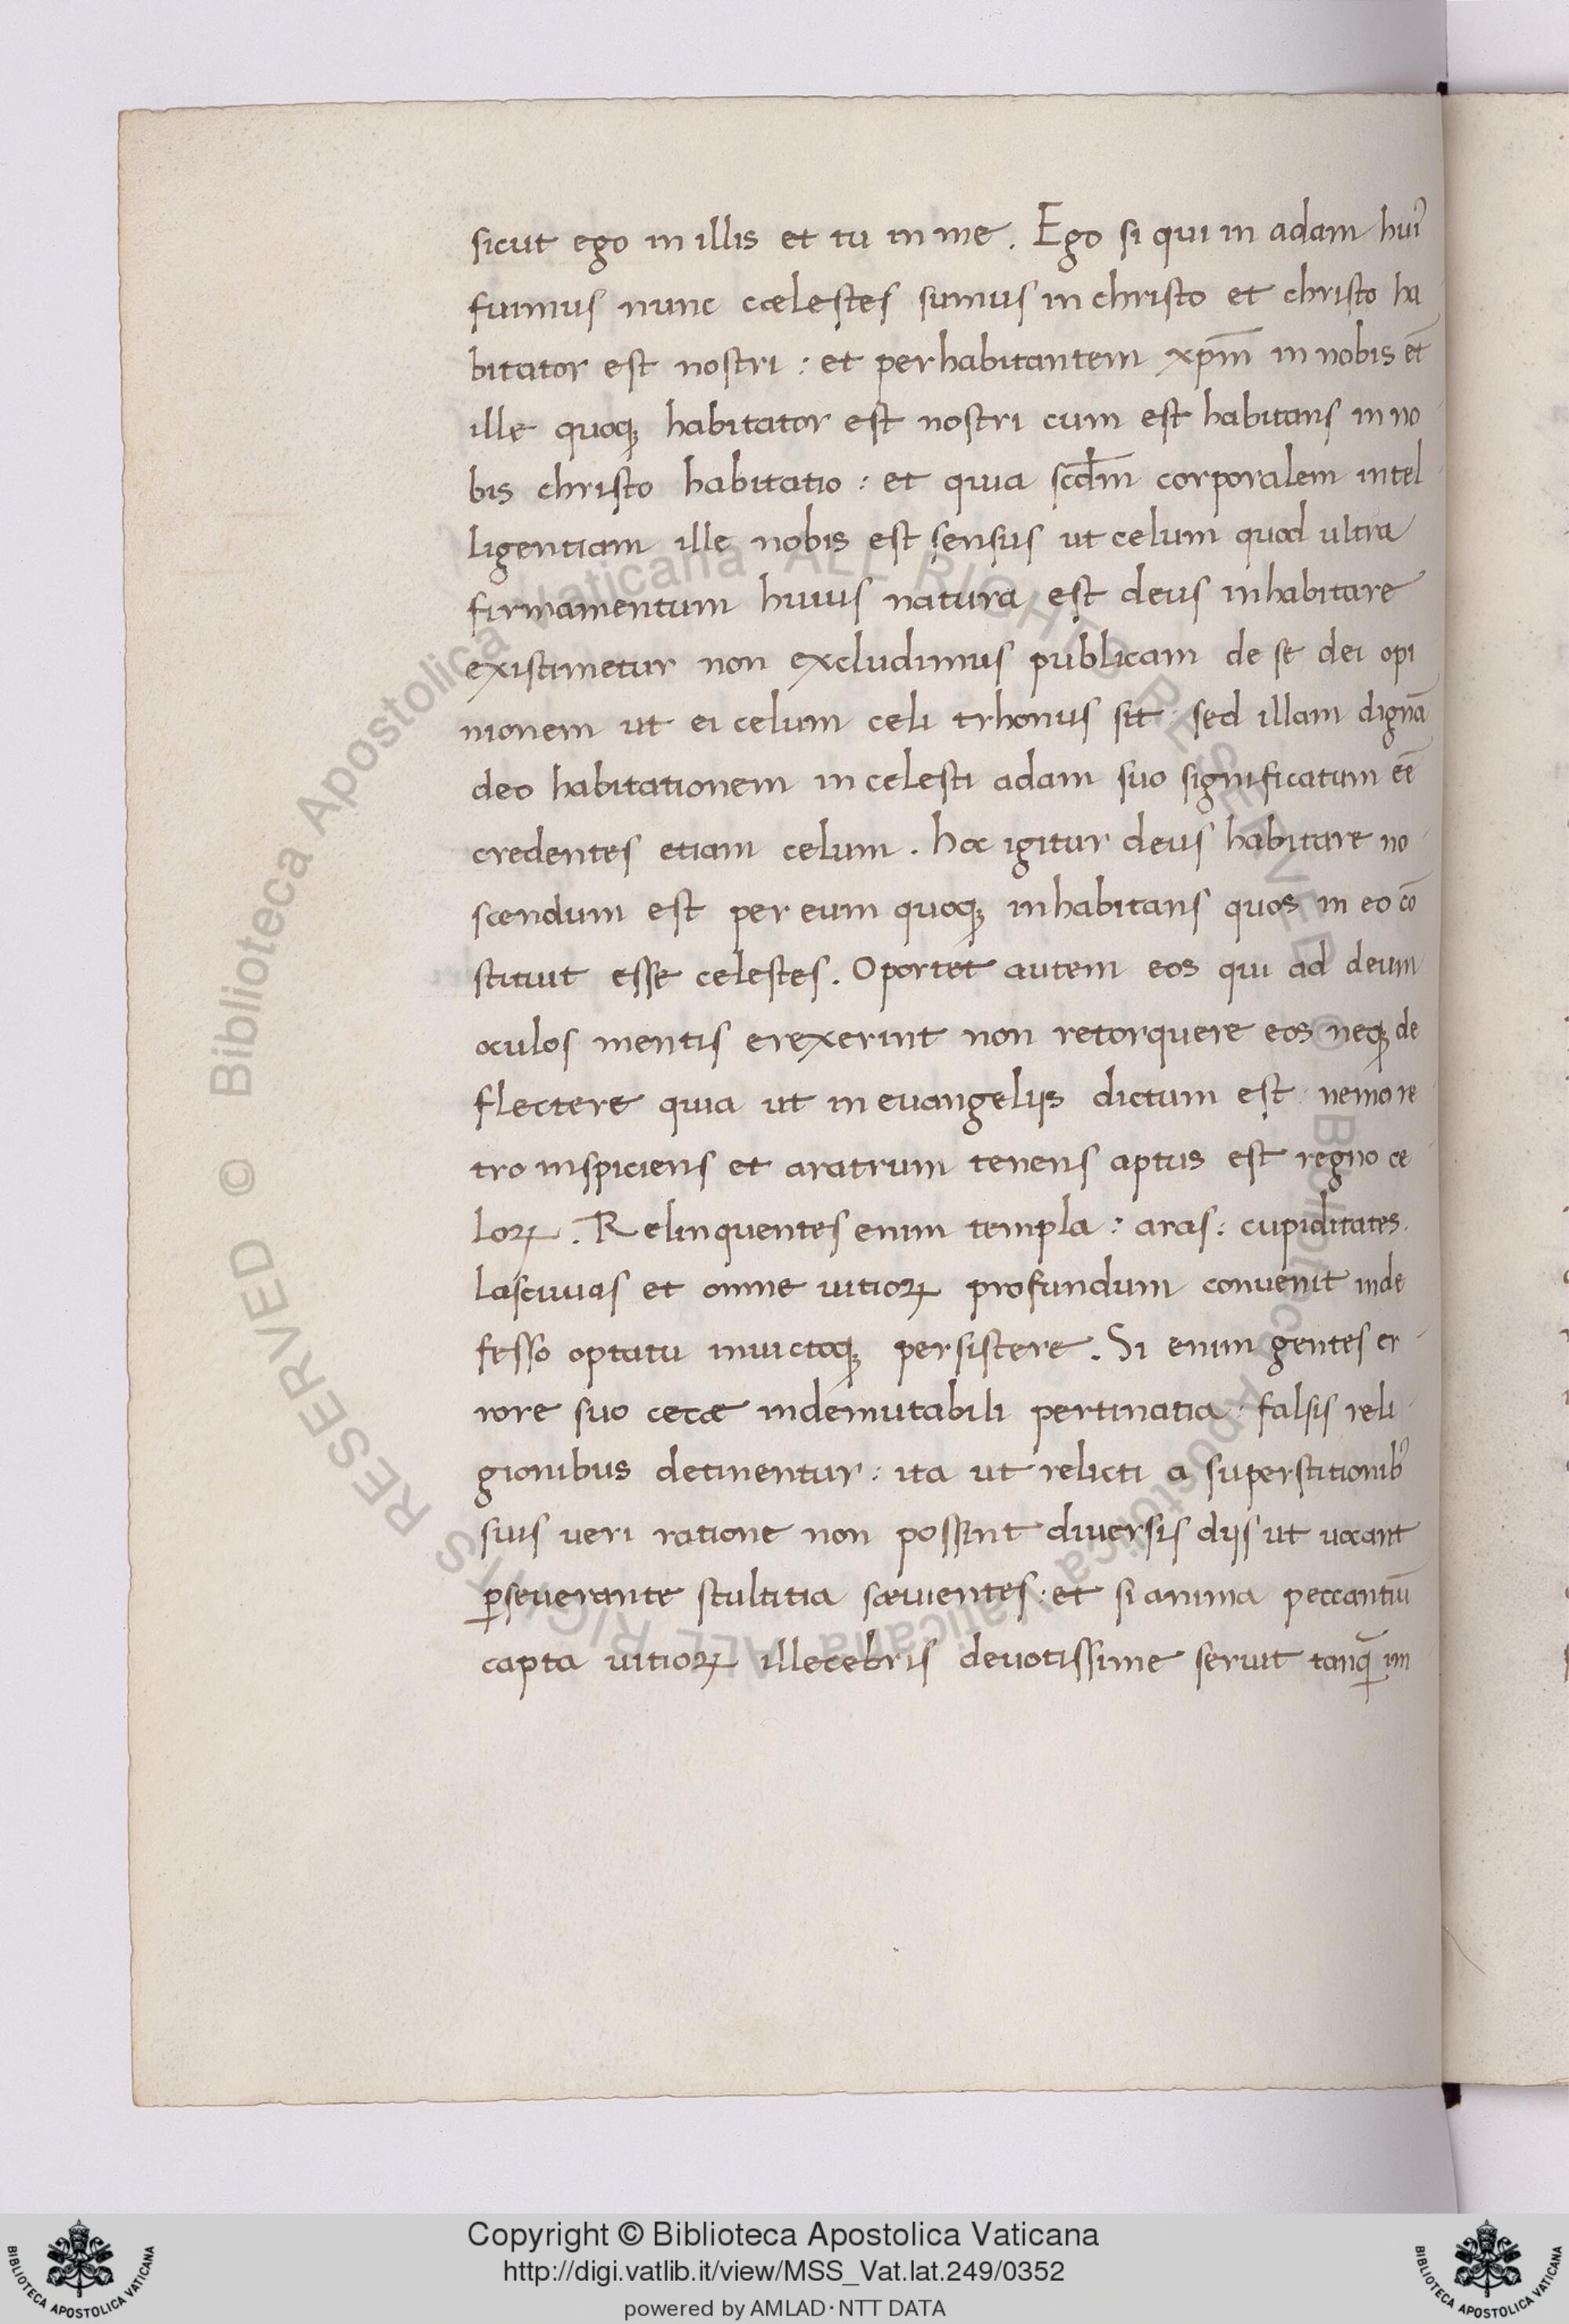 sicut ego in illis et tu in me. Ego si qui in adam huiꝰ
fuimus nunc cælestes sumus in christo et christo ha
bitator est nostri : et per habitantem xpm̅ in nobis et̅
ille quoqꝫ habitator est nostri cum est habitans in no
bis christo habitatio : et quia scd̅m corporalem intel
ligentiam ille nobis est sensus ut celum quod ultra
firmamentum huius natura est deus inhabitare
existimetur non excludimus publicam de se dei opi
nionem ut ei celum celi trhonus sit : sed illam dignā
deo habitationem in celesti adam suo significatum ee̅
credentes etiam celum. hoc igitur deus habitare no
scendum est per eum quoqꝫ inhabitans quos in eo co̅
stituit esse celestes. Oportet autem eos qui ad deum
oculos mentis erexerint non retorquere eos neqꝫ de
flectere quia ut in euangelijs dictum est : nemo re
tro inspiciens et aratrum tenens aptus est regno ce
loꝝ. Relinquentes enim templa : aras : cupiditates.
lasciuias et omne uitioꝝ profundum conuenit inde
fesso optatu inuictoqꝫ persistere. Si enim gentes er
rore suo cecæ indemutabili pertinatia : falsis reli
gionibus detinentur : ita ut relicti a superstitionibꝰ
suis ueri ratione non possint diuersis dijs ut uocant
ꝑseuerante stultitia sæuientes : et si anima peccantiū
capta uitioꝝ illecebris deuotissime seruit tanq̅ im
Copyright © Biblioteca Apostolica Vaticana
http://digi.vatlib.it/view/MSS_Vat.lat.249/0352
powered by AMLAD·NTT DATA
BIBLIOTECA APOSTOLICA VATICANA
BIBLIOTECA APOSTOLICA VATICANA
© Biblioteca Apostolica Vaticana ALL RIGHTS RESERVED © Biblioteca Apostolica Vaticana ALL RIGHTS RESERVED